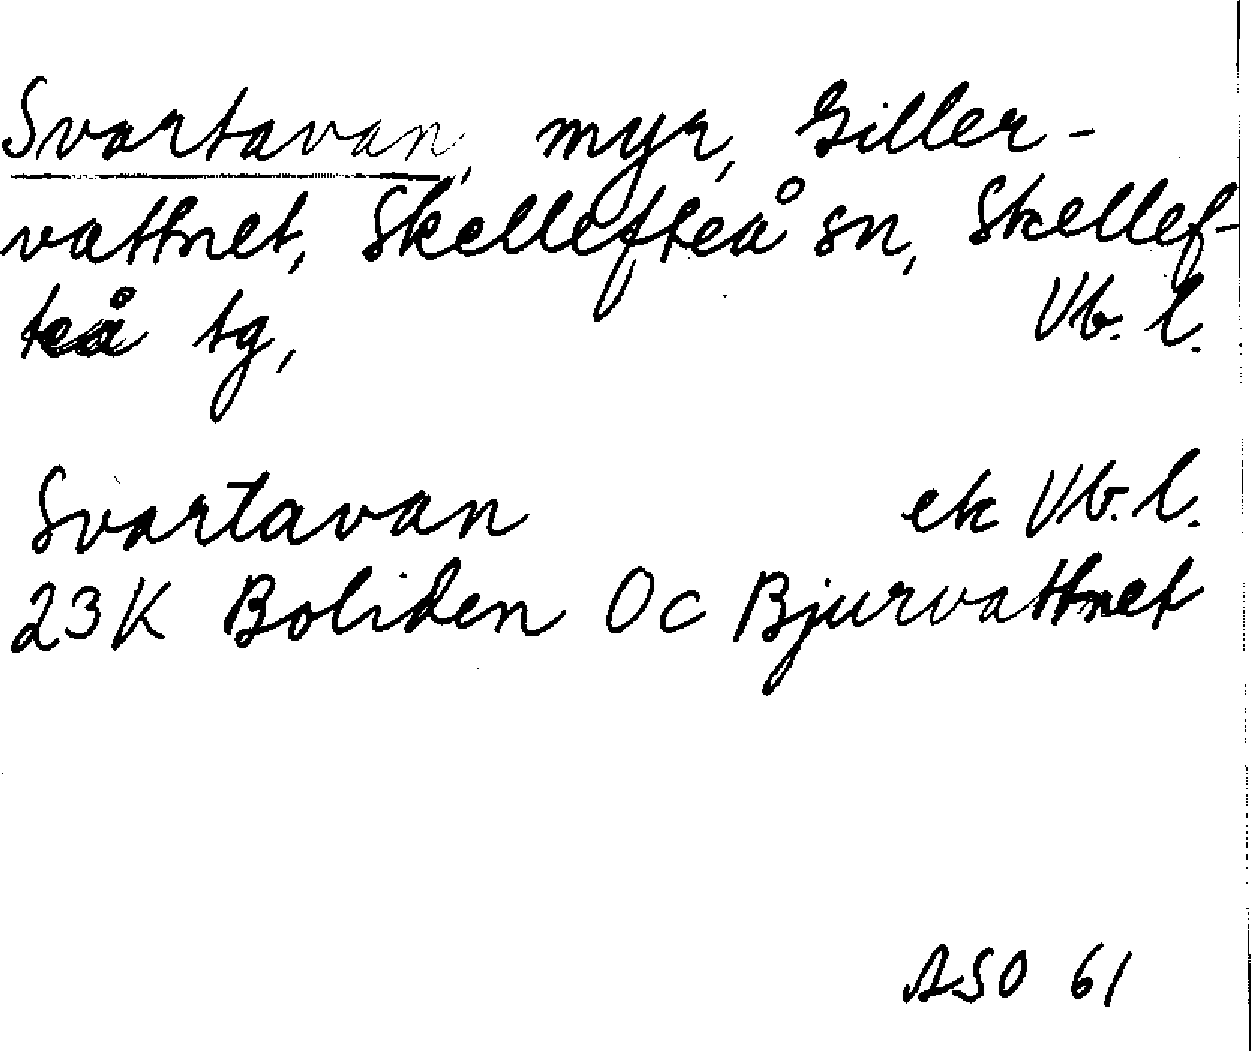 Svartavan, myr, Giller-
vattnet, Skellefteå sn, Skellef-
teå tg, Vb. l.
Svartavan ek Vb. l.
23K Boliden 0c Bjurvattnet
ASO 61